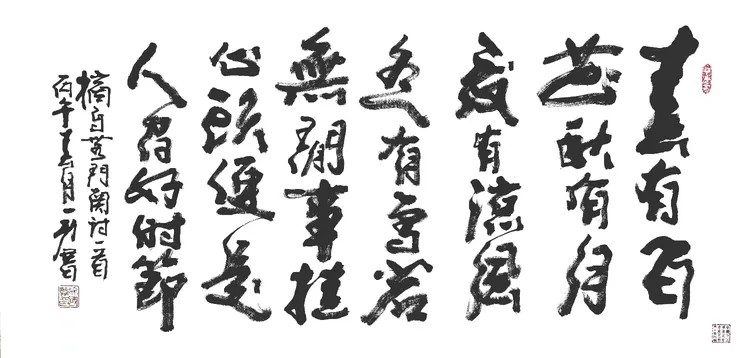 春有百
花秋有月
夏有涼風
冬有雪若
無閑事挂
心頭便是
人間好时節
摘自無門關诗一首
丙午春月一书